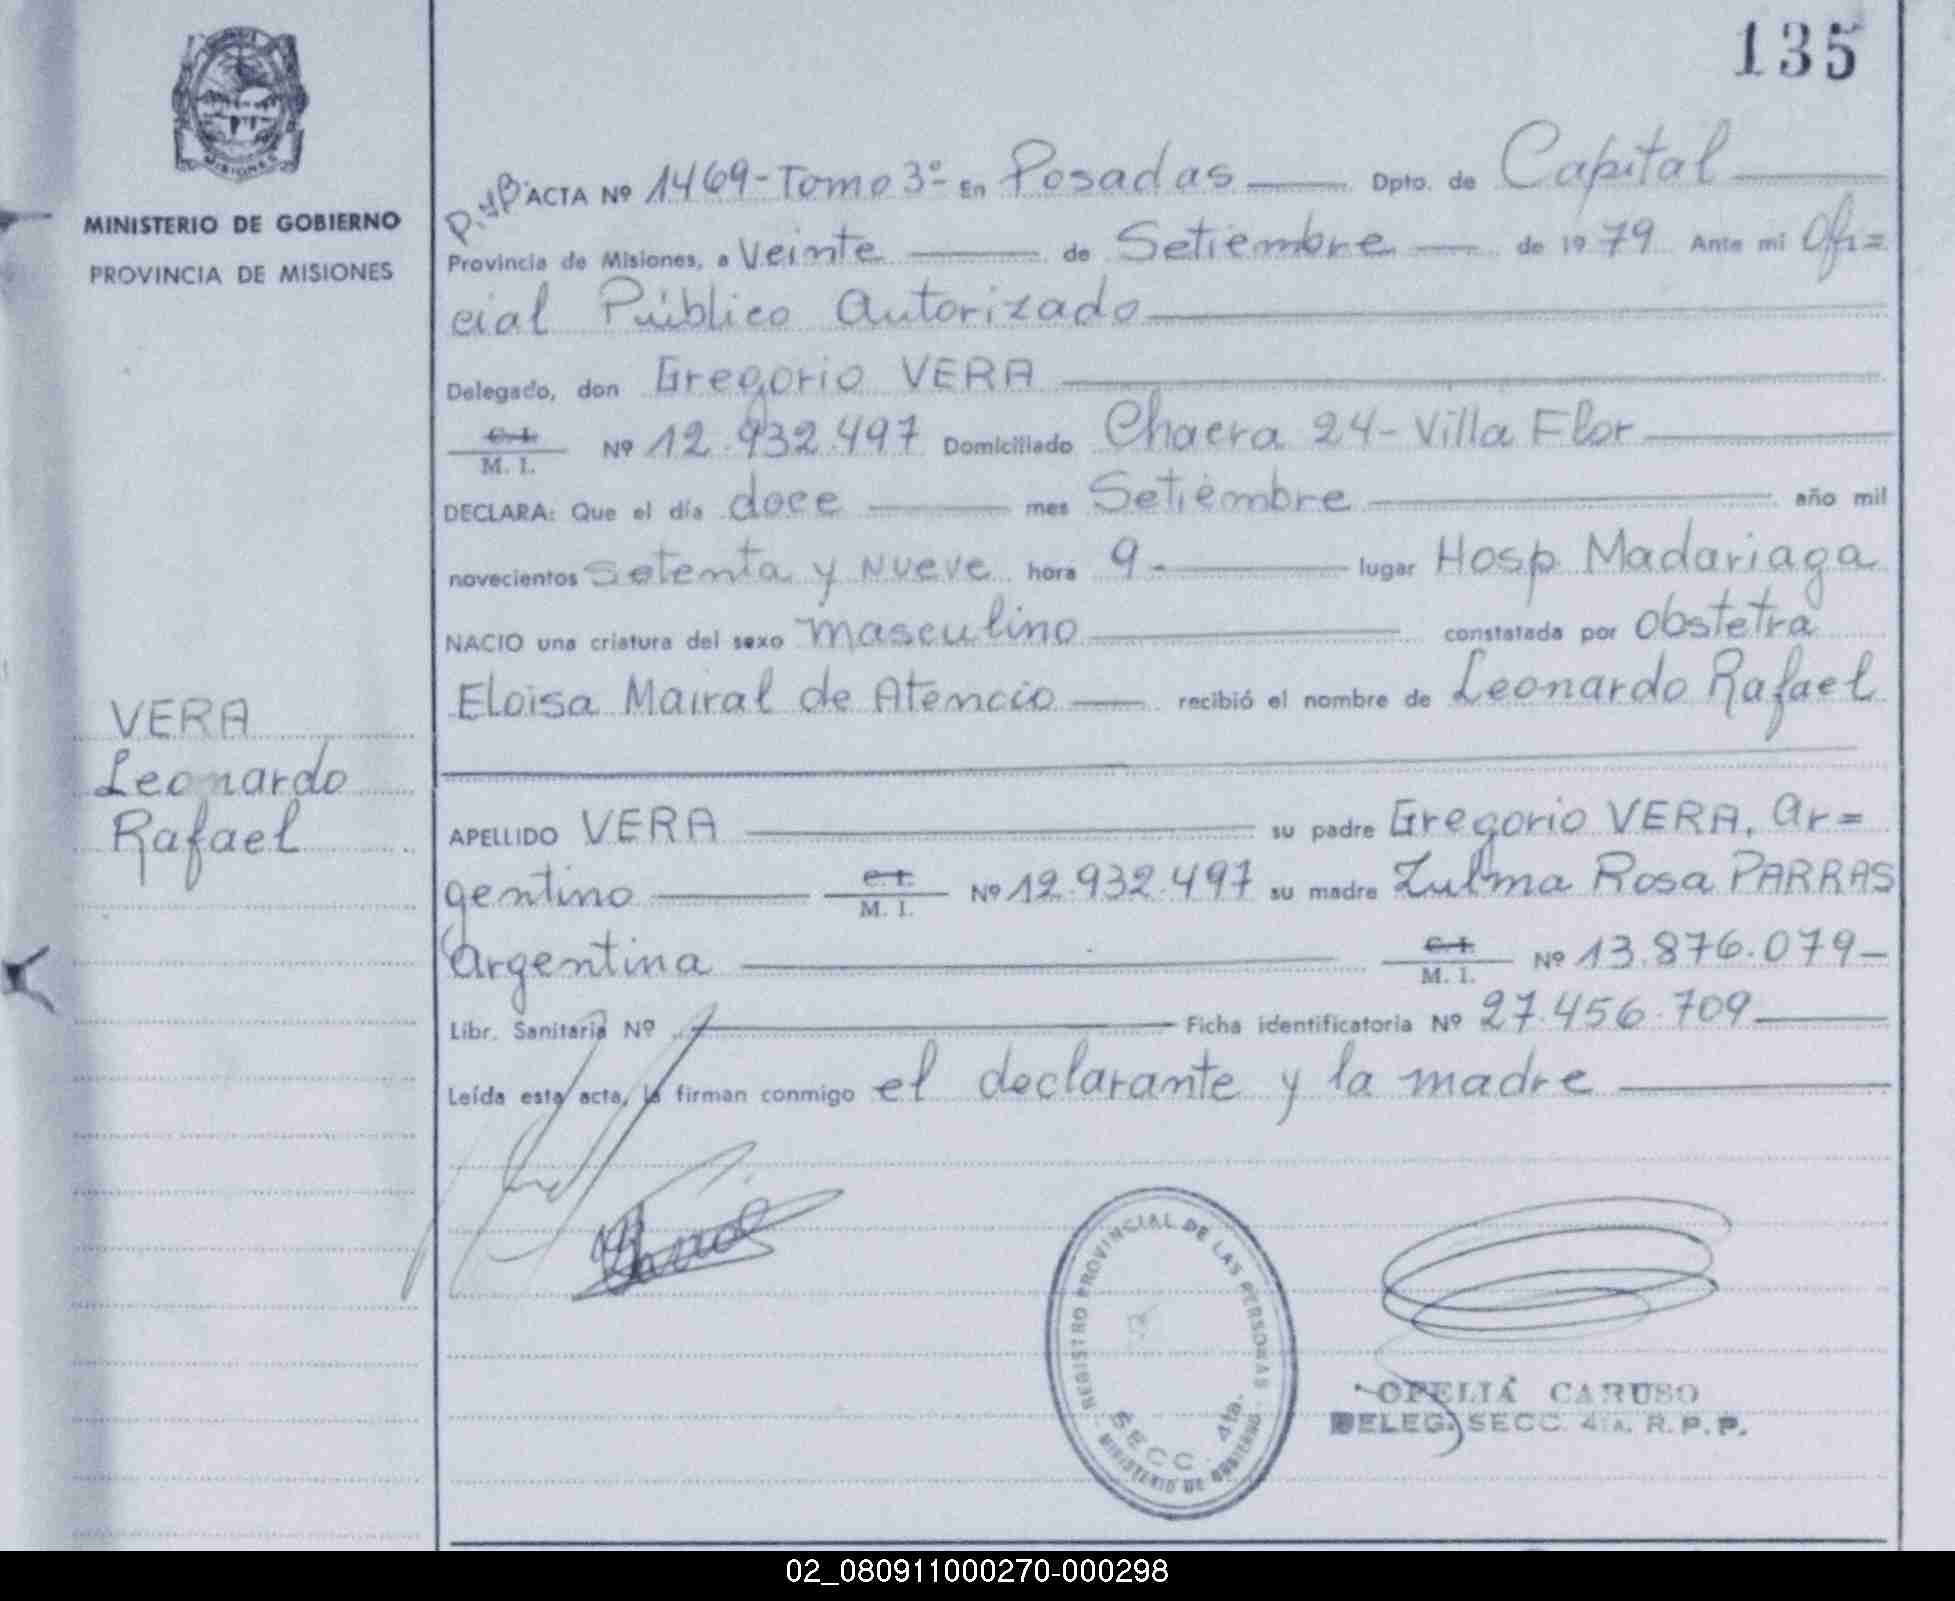 135
MISIONES
MINISTERIO DE GOBIERNO
PROVINCIA DE MISIONES
VERA
Leonardo
Rafael
P.yB. ACTA Nº 1469-Tomo 3º- En Posadas Dpto. de Capital
Provincia de Misiones, a Veinte de Setiembre de 1979 Ante mi Ofi=
cial Público Autorizado
Delegado, don Gregorio VERA
C.I. M. I. Nº 12.932.497 Domiciliado Chacra 24- Villa Flor
DECLARA: Que el día doce mes Setiembre año mil
novecientos Setenta y Nueve hora 9- lugar Hosp. Madariaga
NACIO una criatura del sexo masculino constatada por obstetra
Eloisa Mairal de Atencio recibió el nombre de Leonardo Rafael
APELLIDO VERA su padre Gregorio VERA, ar=
gentino C.I. M. I. Nº 12.932.497 su madre Zulma Rosa PARRAS
argentina C.I. M. I. Nº 13.876.079-
Libr. Sanitaria Nº Ficha identificatoria Nº 27.456.709
Leída esta acta, la firman conmigo el declarante y la madre
REGISTRO PROVINCIAL DE LAS PERSONAS
SECC. 4ta.
MINISTERIO DE GOBIERNO
OFELIA CARUSO
DELEG. SECC. 4TA. R.P.P.
02_080911000270-000298